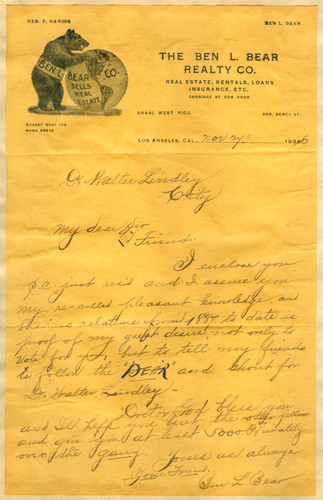 GEO. F. HARDIE
BEN L. BEAR
BEN L. BEAR CO.
SELLS
REAL
ESTATE
THE BEN L. BEAR
REALTY CO.
REAL ESTATE, RENTALS, LOANS
INSURANCE, ETC.
CARRIAGE AT OUR DOOR
SUNSET WEST
HOME
WEST PICO
COR. DEWEY ST.
LOS ANGELES, CAL., Nov 29 1906
Dr. Walter Lindley
City
My dear Sir
& Friend.
I enclose you
P.C. just rec'd and I assure you
my so-called pleasant knowledge, and
business relations from 1897 to date is
proof of my great desire not only to
vote for you, but to tell my friends
to follow the "BEAR" and shout for
Dr. Walter Lindley.
Doctor God bless you
and I'll help you beat the other fellows
and give you at least 5000 plurality
over the gang. Yours as always
Your friend,
Ben L. Bear